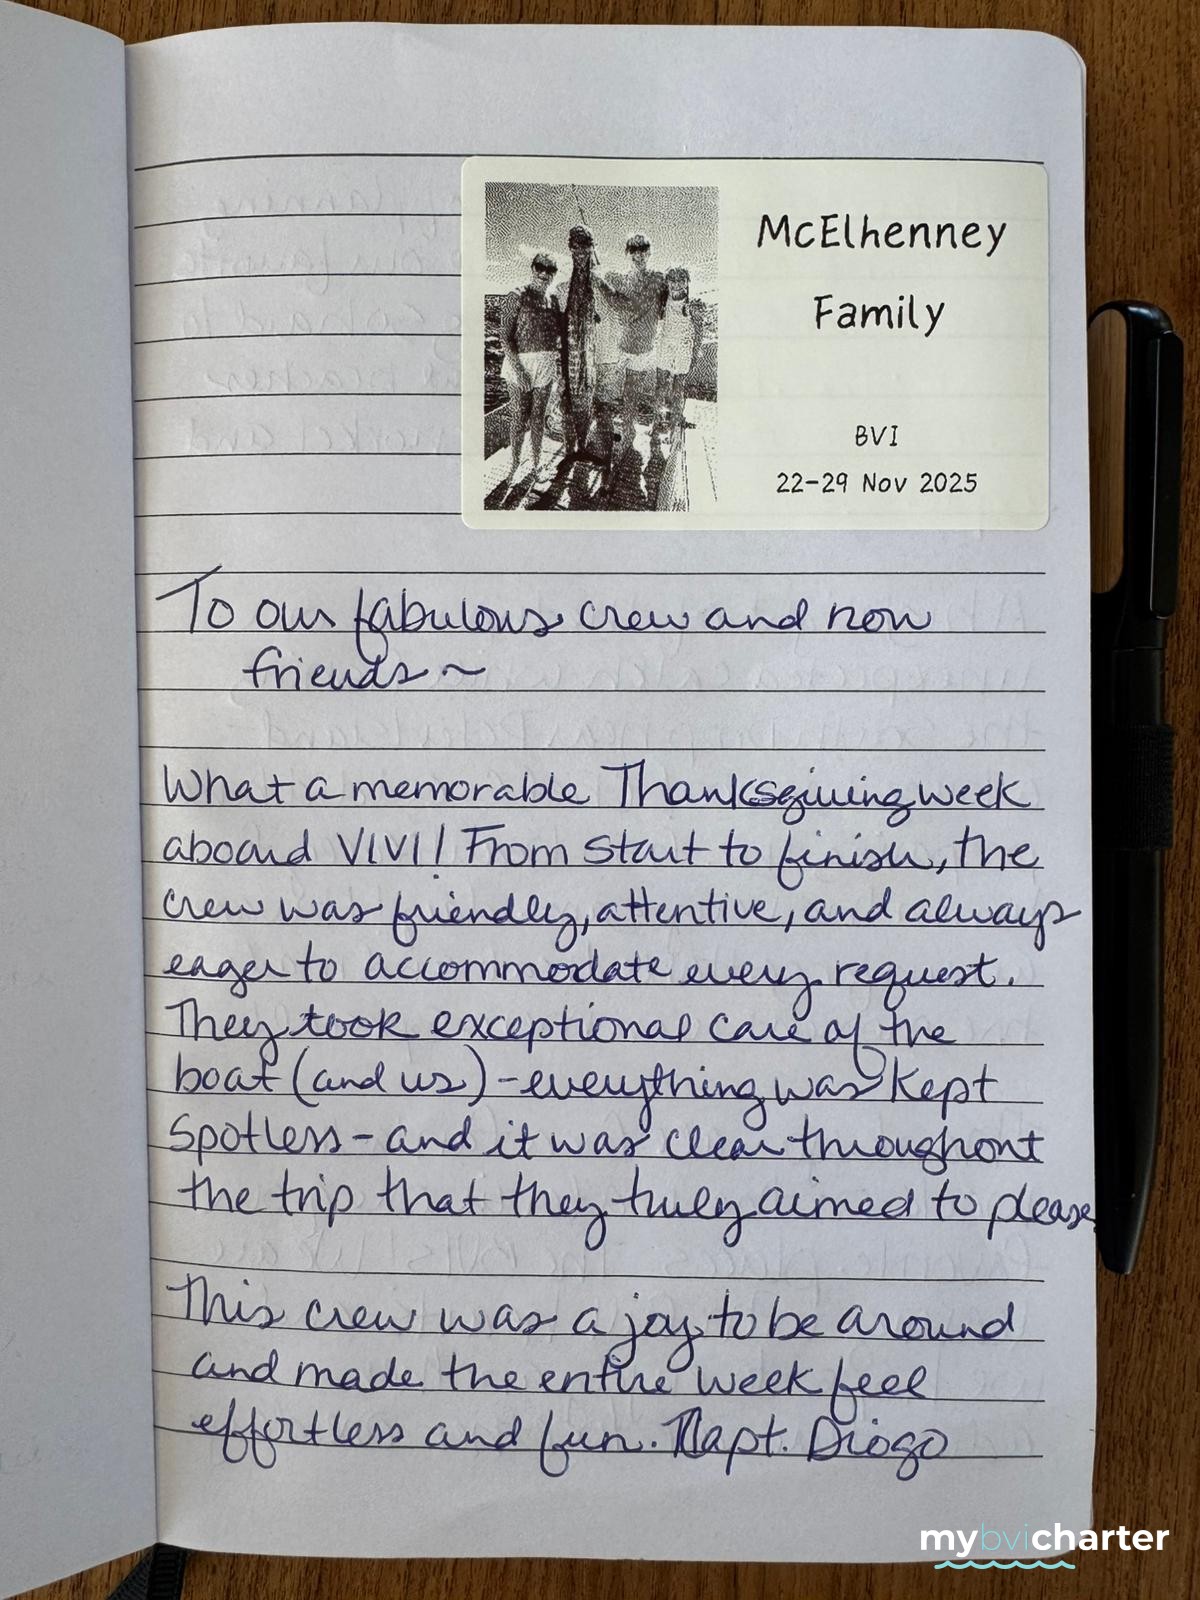 McElhenney
Family
BVI
22-29 Nov 2025
To our fabulous crew and now
friends ~
What a memorable Thanksgiving week
aboard VIVI! From start to finish, the
crew was friendly, attentive, and always
eager to accommodate every request.
They took exceptional care of the
boat (and us) - everything was kept
spotless - and it was clear throughout
the trip that they truly aimed to please.
This crew was a joy to be around
and made the entire week feel
effortless and fun. Capt. Diogo
mybvicharter